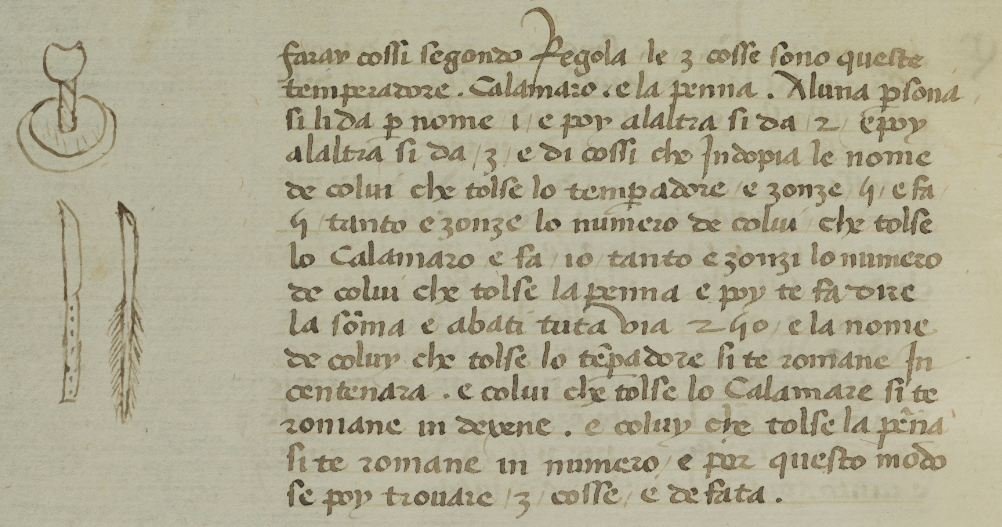 faray cossi segondo Regola le 3 cosse sono queste
temperadore . Calamaro . e la penna . Aluna psona
si li da p nome 1 / e poy alaltra si da / 2 / e poy
alaltra si da / 3 / e di cossi che Indopia le nome
de colui che tolse lo tempadore / e zonze 5 / e fa /
5 / tanto e zonze lo numero de colui che tolse
lo Calamaro e fa / 10 / tanto e zonzi lo numero
de colui che tolse la penna e poy te fa dire
la soma e abati tuta via 250 / e la nome
de coluy che tolse lo tepadore si te romane In
centenara . e colui che tolse lo Calamare si te
romane in dexene . e coluy che tolse la pena
si te romane in numero / e per questo modo
se poy trovare / 3 / cosse / e de fata .